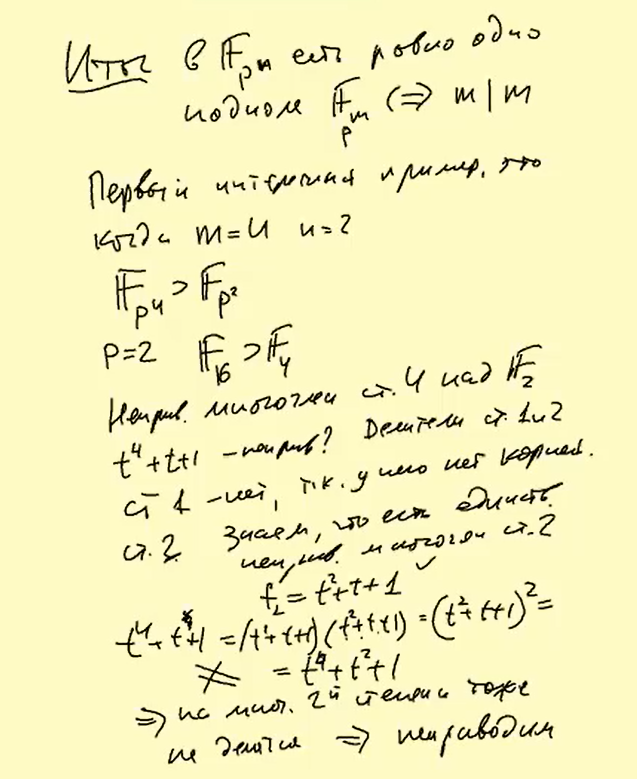 Итог в 𝔽_{pⁿ} есть ровно одно
подполе 𝔽_{p^m} ⇔ m | m
Первый интересный пример, это
когда m=4 n=2
𝔽_{p⁴} ⊃ 𝔽_{p²}
p=2 𝔽₁₆ ⊃ 𝔽₄
Неприв. многочлен ст. 4 над 𝔽₂
t⁴+t+1 – неприв? Делители ст. 1 и 2
ст 1 – нет, т.к. у него нет корней.
ст. 2 Знаем, что есть единств.
неприв. многочлен ст. 2
f₂ = t²+t+1 ✓
t⁴+t+1 = (t²+t+1)(t²+t+1) = (t²+t+1)² =
≠ = t⁴+t²+1
⇒ на мног. 2й степени тоже
не делится ⇒ неприводим